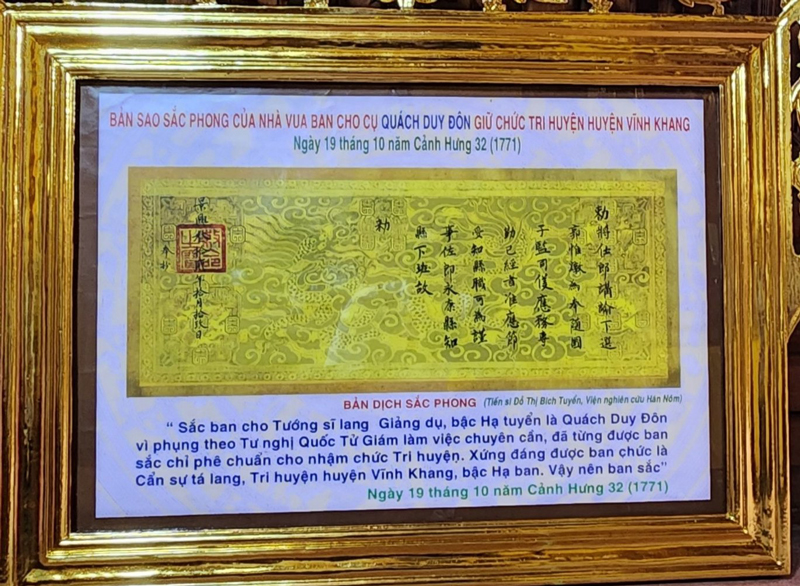 BẢN SAO SẮC PHONG CỦA NHÀ VUA BAN CHO CỤ QUÁCH DUY ĐÔN GIỮ CHỨC TRI HUYỆN HUYỆN VĨNH KHANG
Ngày 19 tháng 10 năm Cảnh Hưng 32 (1771)
勅將仕郎講諭下選
郭惟墩為奉隨國
子監司應務專
勤已經旨准應節
受知縣職可為謹
事佐郎永康縣知
縣下班故
勅
景興叁拾貳年拾月拾玖日
BẢN DỊCH SẮC PHONG (Tiến sĩ Đỗ Thị Bích Tuyển, Viện nghiên cứu Hán Nôm)
“ Sắc ban cho Tướng sĩ lang Giảng dụ, bậc Hạ tuyển là Quách Duy Đôn
vì phụng theo Tư nghị Quốc Tử Giám làm việc chuyên cần, đã từng được ban
sắc chỉ phê chuẩn cho nhậm chức Tri huyện. Xứng đáng được ban chức là
Cẩn sự tá lang, Tri huyện huyện Vĩnh Khang, bậc Hạ ban. Vậy nên ban sắc”
Ngày 19 tháng 10 năm Cảnh Hưng 32 (1771)